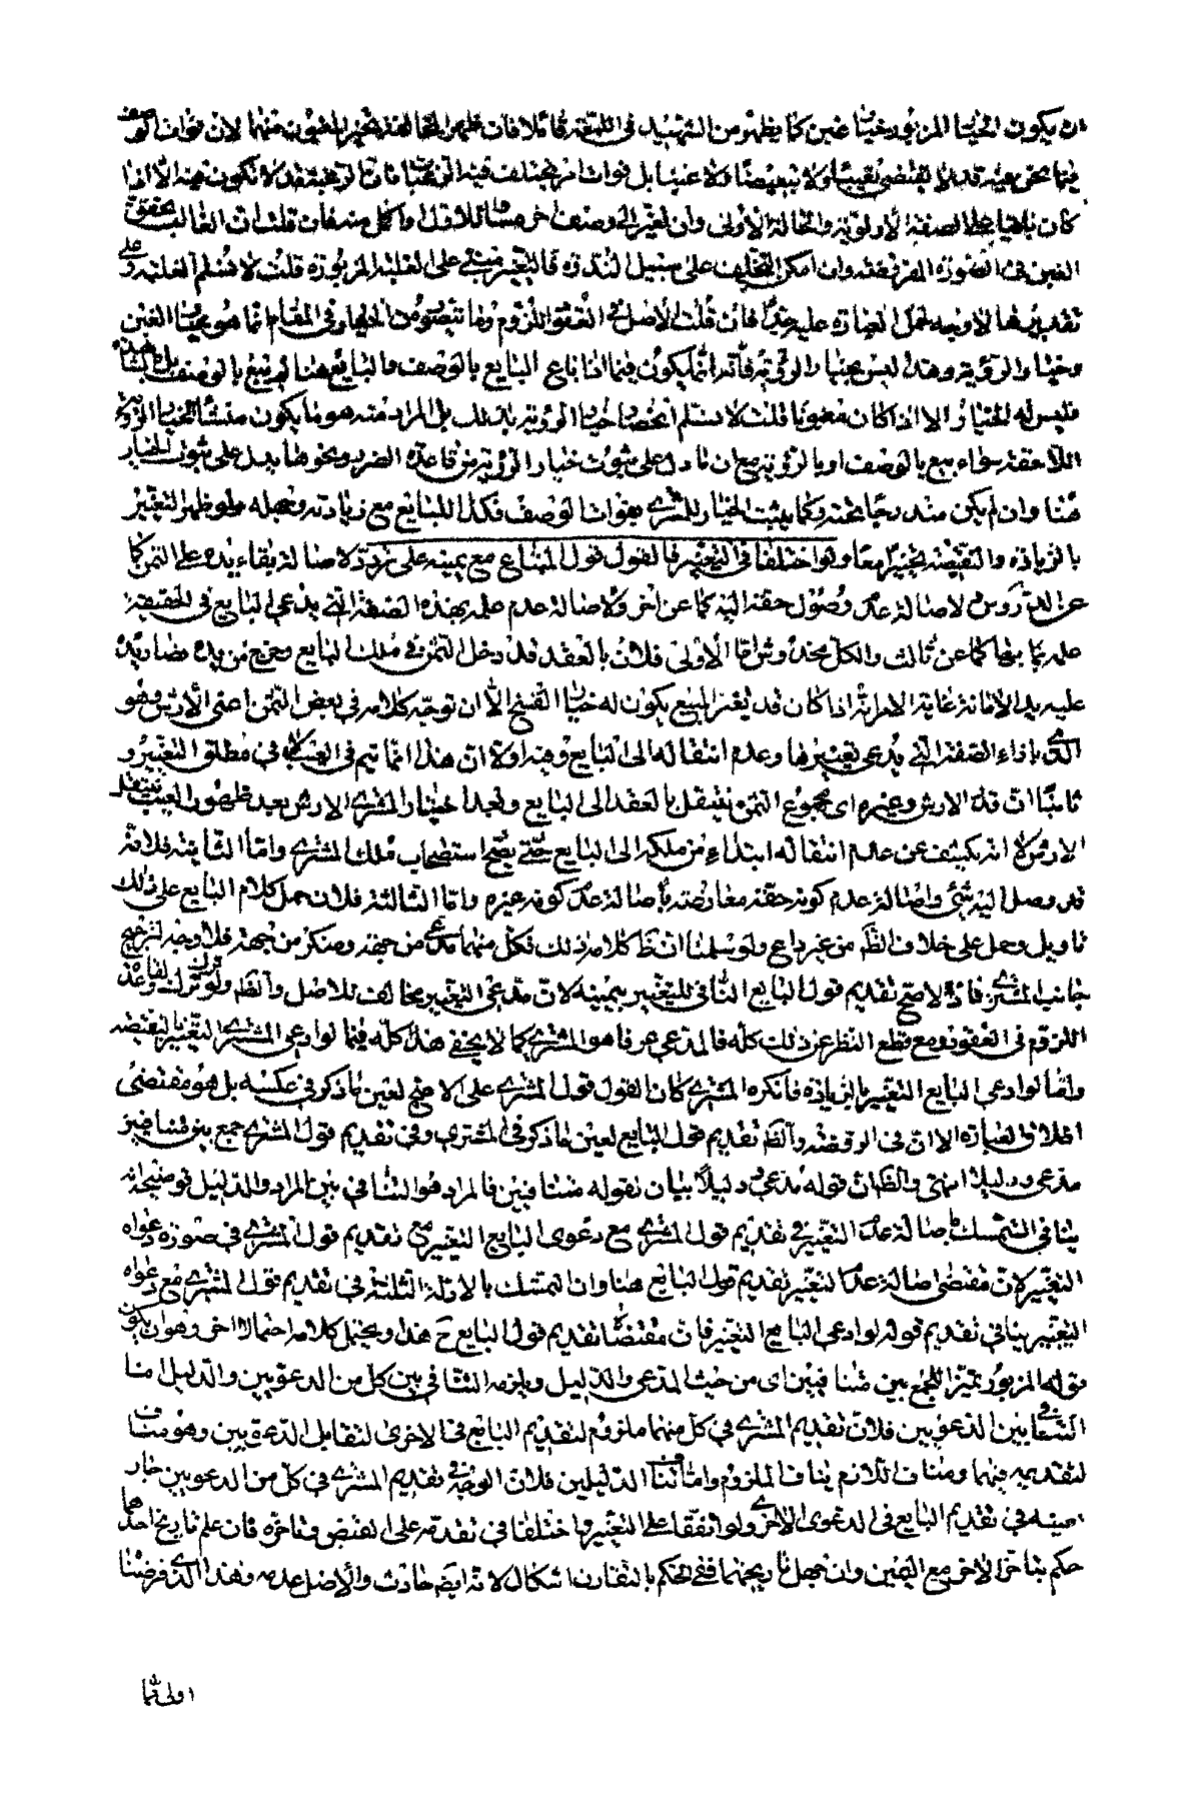 ان يكون الخيار المزبور خيار غبن كما يظهر من الشهيد في اللمعة قائلا فان ظهر المخالفة تخير المغبون منهما لان فوات الوصف
فيما نحن فيه قد لا يقتضي نقيصا ولا تبعيضا ولا غبنا بل فوات امر يختلف فيه الرغبات فان الرغبة قد لا تكون فيه الا اذا
كان باقيا على الصفة الاولوية والحالة الاولى وان تغير الى وصف اخر مساو للاول واكمل منه فان قلت ان الغالب تحقق
الغبن في الصورة المفروضة وان امكن التخلف على سبيل الندرة فالتغيير مبني على الغلبة المزبورة قلت لا نسلم الغلبة وعلى
تقديرها لا وجه لحمل العبارة عليه جدا فان قلت الاصل في العقود اللزوم وما يتصور من الخيار في المقام انما هو خيار الغبن
وخيار الرؤية وهذا ليس بخيار الرؤية فانه انما يكون فيما اذا باع البايع بالوصف والبايع هنا لم يبع بالوصف بل بالمشاهدة
فليس له الخيار الا اذا كان مغبونا قلت لا نسلم انحصار خيار الرؤية بذلك بل المراد منه هو ما يكون منشأ الخيار الرؤية
اللاحقة سواء بيع بالوصف او بالرؤية مع ان ما دل على ثبوت خيار الرؤية من قاعدة الضرر ونحوها يدل على ثبوت الخيار
هنا وان لم يكن مندرجا تحته وكما يثبت الخيار للمشتري بفوات الوصف فكذا للبايع مع زيادته وجهله ولو ظهر التغيير
بالزيادة والنقيصة تخيرا معا ولو اختلفا في التغيير فالقول قول المبتاع مع يمينه على تردد لاصالة بقاء يده على الثمن كما
عن الدروس لاصالة عدم وصول حقه اليه كما عن اخر ولاصالة عدم علمه بهذه الصفة التي يدعي البايع في الحقيقة
علمه بها كما عن ثالث والكل مخدوش اما الاولى فلان بالعقد قد دخل الثمن في ملك البايع وخرج من يده فصار يده
عليه يد الامانة غاية الامر انه اذا كان قد تغير المبيع يكون له خيار الفسخ الا ان توجه كلامه في بعض الثمن اعني الارش وهو
الذي بازاء الصفة التي يدعي تغييرها وعدم انتقاله الى البايع وفيه اولا ان هذا انما يتم في العيب لا في مطلق التغيير و
ثانيا ان قدر الارش وغيره اي مجموع الثمن ينتقل بالعقد الى البايع وبعد اختيار المشتري الارش بعد ظهور العيب ينتقل
الارش لا انه يكشف عن عدم انتقاله ابتداء من ملكه الى البايع حتى يصح استصحاب ملك المشتري واما الثانية فلانه
قد وصل اليه شيء واصالة عدم كونه حقه معارضة باصالة عدم كونه غيره واما الثالثة فلان حمل كلام البايع على ذلك
تاويل وحمل على خلاف الظ من غير داع ولو سلمنا ان ظ كلامه ذلك فكل منهما مدع من جهة ومنكر من جهة فلا وجه لترجيح
جانب المشتري فاذا الاصح تقديم قول البايع النافي للتغيير بيمينه لان مدعي التغيير مخالف للاصل والظ ولو ترك ترك لقاعدة
اللزوم في العقود ومع قطع النظر عن ذلك كله فالمدعي عرفا هو المشتري كما لا يخفى هذا كله فيما لو ادعى المشتري التغيير بالنقيصة
واما لو ادعى البايع التغيير بالزيادة فانكره المشتري كان القول قول المشتري على الاصح لعين ما ذكر في عكسه بل هو مقتضى
اطلاق العبارة الا ان في الروضة والظ تقديم قول البايع لعين ما ذكر في المشتري وفي تقديم قول المشتري جمع بين متنافيين
مدعى ودليلا انتهى والظ ان قوله مدعى ودليلا بيان لقوله متنافيين فالمراد هو التنافي بين المراد والدليل توضيحه انه
ينافي التمسك باصالة عدم التغيير في تقديم قول المشتري مع دعوى البايع التغيير مع تقديم قول المشتري في صورة دعواه
التغيير لان مقتضى اصالة عدم التغيير تقديم قول البايع هنا وان التمسك بالادلة الثلثة في تقديم قول المشتري مع دعواه
التغيير ينافي تقديم قوله لو ادعى البايع التغيير فان مقتضاها تقديم قول البايع ح هذا ويحتمل كلامه احتمالا اخر وهو ان يكون
قوله المزبور تميزا للجمع بين متنافيين اي من حيث المدعى والدليل ويلزمه التنافي بين كل من الدعويين والدليل اما
التنافي بين الدعويين فلان تقديم المشتري في كل منهما ملزوم لتقديم البايع في الاخرى لتقابل الدعويين وهو مناف
لتقديمه فيهما ومنافى اللازم مناف الملزوم واما تنافى الدليلين فلان الوجه في تقديم المشتري في كل من الدعويين جار
بعينه في تقديم البايع في الدعوى الاخرى ولو اتفقا على التغيير واختلفا في تقدمه على القبض وتاخره فان علم تاريخ احدهما
حكم بتاخر الاخر مع اليمين وان جهل تاريخهما ففي الحكم بالتقارن اشكال لانه ايضا حادث والاصل عدمه وهذا الذي فرضنا
اولى مما